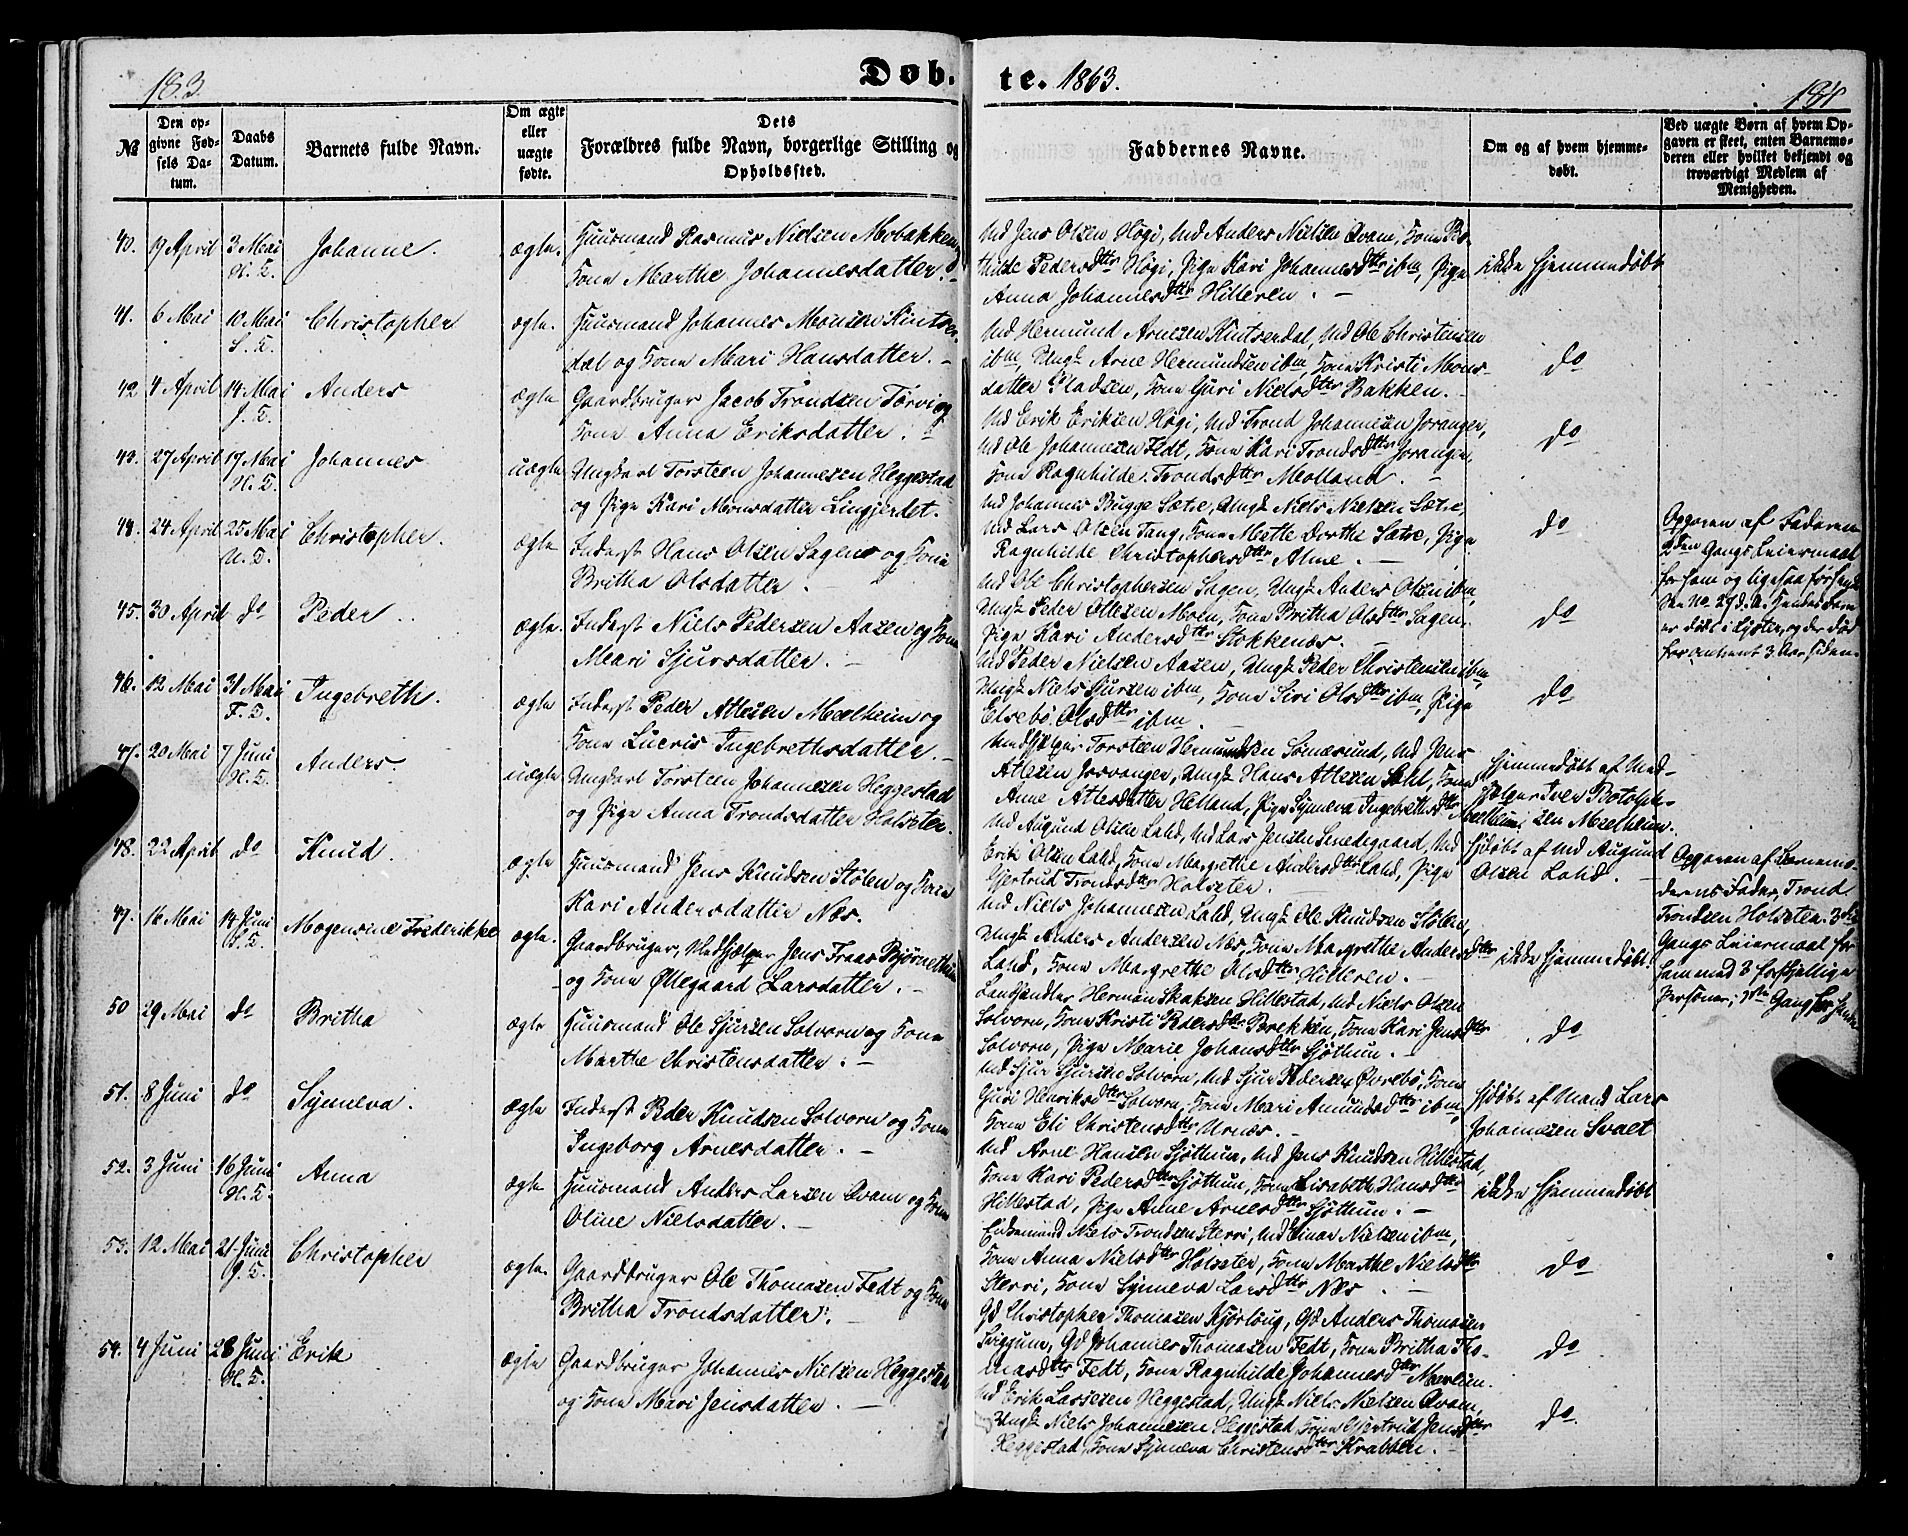 183.
Døb-
te. 1863.
184
№
Den op-
givne Fød-
sels Da-
tum.
Daabs
Datum.
Barnets fulde Navn.
Om ægte
eller
uægte
fødte.
Dets
Forældres fulde Navn, borgerlige Stilling og
Opholdssted.
Faddernes Navne.
Om og af hvem hjemme-
døbt.
Ved uægte Børn af hvem Op-
gaven er skeet, enten Barnemo-
deren eller hvilket bekjendt og
troværdigt Medlem af
Menigheden.
40. 19 April 3 Mai H. K. Johanne. ægte. Huusmand Rasmus Nielsen Mobakken og
Kone Marthe Johannesdatter. –
Md Jens Olsen Høgi, Md Anders Nielsen Qvam, Kone Bo-
thilde Pedersdttr Høgi, Pige Kari Johannesdttr ibm, Pige
Anna Johannesdttr Hilleren. –
ikke hjemmedøbt
41. 6 Mai 10 Mai S. K. Christopher ægte. Huusmand Johannes Monsen Kintser-
dal og Kone Mari Hansdatter. –
Md Hermund Arnesen Kintserdal, Md Ole Christensen
ibm, Ungk. Arne Hermundsen ibm, Kone Kristi Mons-
datter Pladsen, Kone Guri Nielsdttr Bakken. –
do
42 4 April 14 Mai J. K. Anders ægte Gaardbruger Jacob Trondsen Tørvi og
Kone Anna Eriksdatter. –
Md Erik Eriksen Høgi, Md Trond Johannesen Joranger,
Md Ole Johannesen Fedt, Kone Kari Trondsdttr Joranger,
Kone Ragnhilde Trondsdttr Molland. –
do
43. 27 April 17 Mai H. K. Johannes uægte Ungkarl Torsteen Johannesen Heggestad
og Pige Kari Monsdatter Lingjerdet.
Md Johannes Bugge Sætre, Ungk Niels Nielsen Sætre,
Md Lars Olsen Tang, Kone Mette Dorthe Sætre, Pige
Ragnhilde Christophersdttr Alme. –
do
Opgaven af Faderen
2den Gangs Leiermaal
for ham og ligesaa for hende
See No. 27 d. A. hendes Barn
er døbt i Lyster, og der død
for omtrent 3 Aar siden.
44. 24 April 25 Mai U. K. Christopher. ægte Inderst Hans Olsen Sagen og Kone
Britha Olsdatter.
Md Ole Christophersen Sagen, Ungk Anders Olsen ibm,
Ungk Peder Ottesen Moen, Kone Britha Olsdttr Sagen,
Pige Kari Andersdttr Stokkenæs. –
do
45. 30 April do Peder. ægte. Inderst Niels Pedersen Aasen og Kone
Mari Sjursdatter. –
Md Peder Nielsen Aasen, Ungk Peder Christensen ibm,
Ungk Niels Sjursen ibm, Kone Siri Olsdttr ibm, Pige
Elsebø Olsdttr ibm. –
do
46. 12 Mai 31 Mai F. K. Ingebreth. ægte Inderst Peder Attesen Melheim og
Kone Lucris Ingebrethsdatter. –
Medhjelper Torsteen Hermundsen Somæsund, Md Jens
Attesen Jorvanger, Ungk Hans Attesen Lahl, Kone
Anne Attesdatter Helland, Pige Synneva Ingebrethsdttr Melheim.
hjemmedøbt af Med-
hjelper Iver Botolph-
sen Melheim.
47. 20 Mai 7 Juni H. K. Anders. uægte Ungkarl Torsteen Johannesen Heggestad
og Pige Anna Trondsdatter Holsæter.
Md Augund Olsen Lahl, Md Lars Jensen Snedegaard, Md
Erik Olsen Lahl, Kone Margrethe Andersdttr Lahl, Pige
Gjertrud Trondsdttr Holsæter. –
hjdøbt af Md Augund
Olsen Lahl. –
Opgaven af Barnemo-
derens Fader, Trond
Trondsen Holsæter. 3die
Gangs Leiermaal for
ham med 3 forskjellige
Personer; 1ste Gang for hende
48. 22 April do Knud. ægte Huusmand Jens Knudsen Stølen og Kone
Kari Andersdatter Næs.
Md Niels Johannesen Lahl, Ungk Ole Knudsen Stølen,
Ungk Anders Andersen Næs, Kone Margrethe Andersdttr
Lahl, Kone Margrethe Olsdttr Hilleren. –
ikke hjemmedøbt.
49. 16 Mai 14 Juni S. K. Mogensine Frederikke ægte. Gaardbruger, Medhjælper Jens Fraas Bjørnethun
og Kone Øllegaard Larsdatter. –
Landhandler Herman Skaksen Hillestad, Md Niels Olsen
Solvorn, Kone Kristi Pedersdttr Brekken, Kone Kari Jensdttr
Solvorn, Pige Marie Johansdttr Sjøthun. –
do
50 29 Mai do Britha ægte Huusmand Ole Sjursen Solvorn og Kone
Marthe Christensdatter. –
Md Sjur Sjursen Solvorn, Md Sjur Pedersen Øvrebø, Kone
Guri Henriksdttr Solvorn, Kone Mari Amundsdttr ibm,
Kone Eli Christensdttr Urnæs. –
hjdøbt af Mand Lars
Johannesen Svaet
51. 8 Juni do Synneva. ægte Inderst Peder Knudsen Solvorn og Kone
Ingeborg Arnesdatter. –
Md Arne Hansen Sjøthun, Md Jens Knudsen Hillestad,
Kone Kari Pedersdttr Sjøthun, Kone Lisabeth Hansdttr
Hillestad, Pige Anne Arnesdttr Sjøthun. –
ikke hjemmedøbt
52. 3 Juni 16 Juni H. K. Anna ægte Huusmand Anders Larsen Qvam og Kone
Oline Nielsdatter. –
Enkemand Niels Trondsen Sterri, Md Einar Nielsen ibm,
Kone Anna Nielsdttr Holsæter, Kone Marthe Nielsdttr
Sterri, Kone Synneva Larsdttr Næs. –
do
53. 12 Mai 21 Juni G. K. Christopher ægte. Gaardbruger Ole Thomasen Fedt og Kone
Britha Trondsdatter.
Gd Christopher Thomasen Kjørlaug, Gd Anders Thomasen
Sviggum, Gd Johannes Thomasen Fedt, Kone Britha Tho-
masdttr Fedt, Kone Ragnhilde Johannesdttr Marheim.
do
54. 4 Juni 28 Juni H. K. Erik ægte Gaardbruger Johannes Nielsen Heggestad
og Kone Mari Jensdatter. –
Md Erik Lassesen Heggestad, Ungk Niels Nielsen Qvam,
Ungk Niels Johannesen Heggestad, Kone Gjertrud Jensdttr
Heggestad, Kone Synneva Christensdttr Krabben. –
do